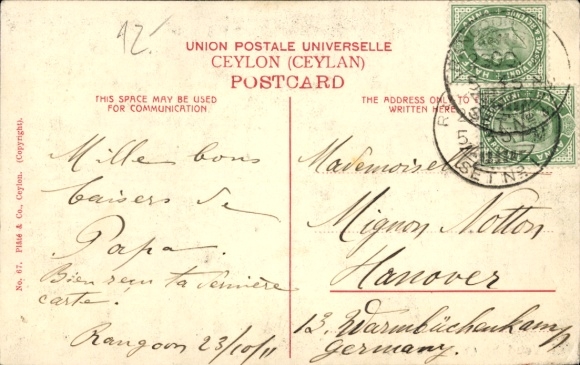 12.
UNION POSTALE UNIVERSELLE
CEYLON (CEYLAN)
POSTCARD
THIS SPACE MAY BE USED
FOR COMMUNICATION.
THE ADDRESS ONLY TO
WRITTEN HERE
No. 67. Plâté & Co., Ceylon. (Copyright).
Mille bons
baisers de
Papa.
Bien reçu ta dernière
carte.
Rangoon 23/10/11
Mademoiselle
Mignon Notton
Hanover
13. Warmbüchenkamp
Germany.
HALF ANNA
SET No.